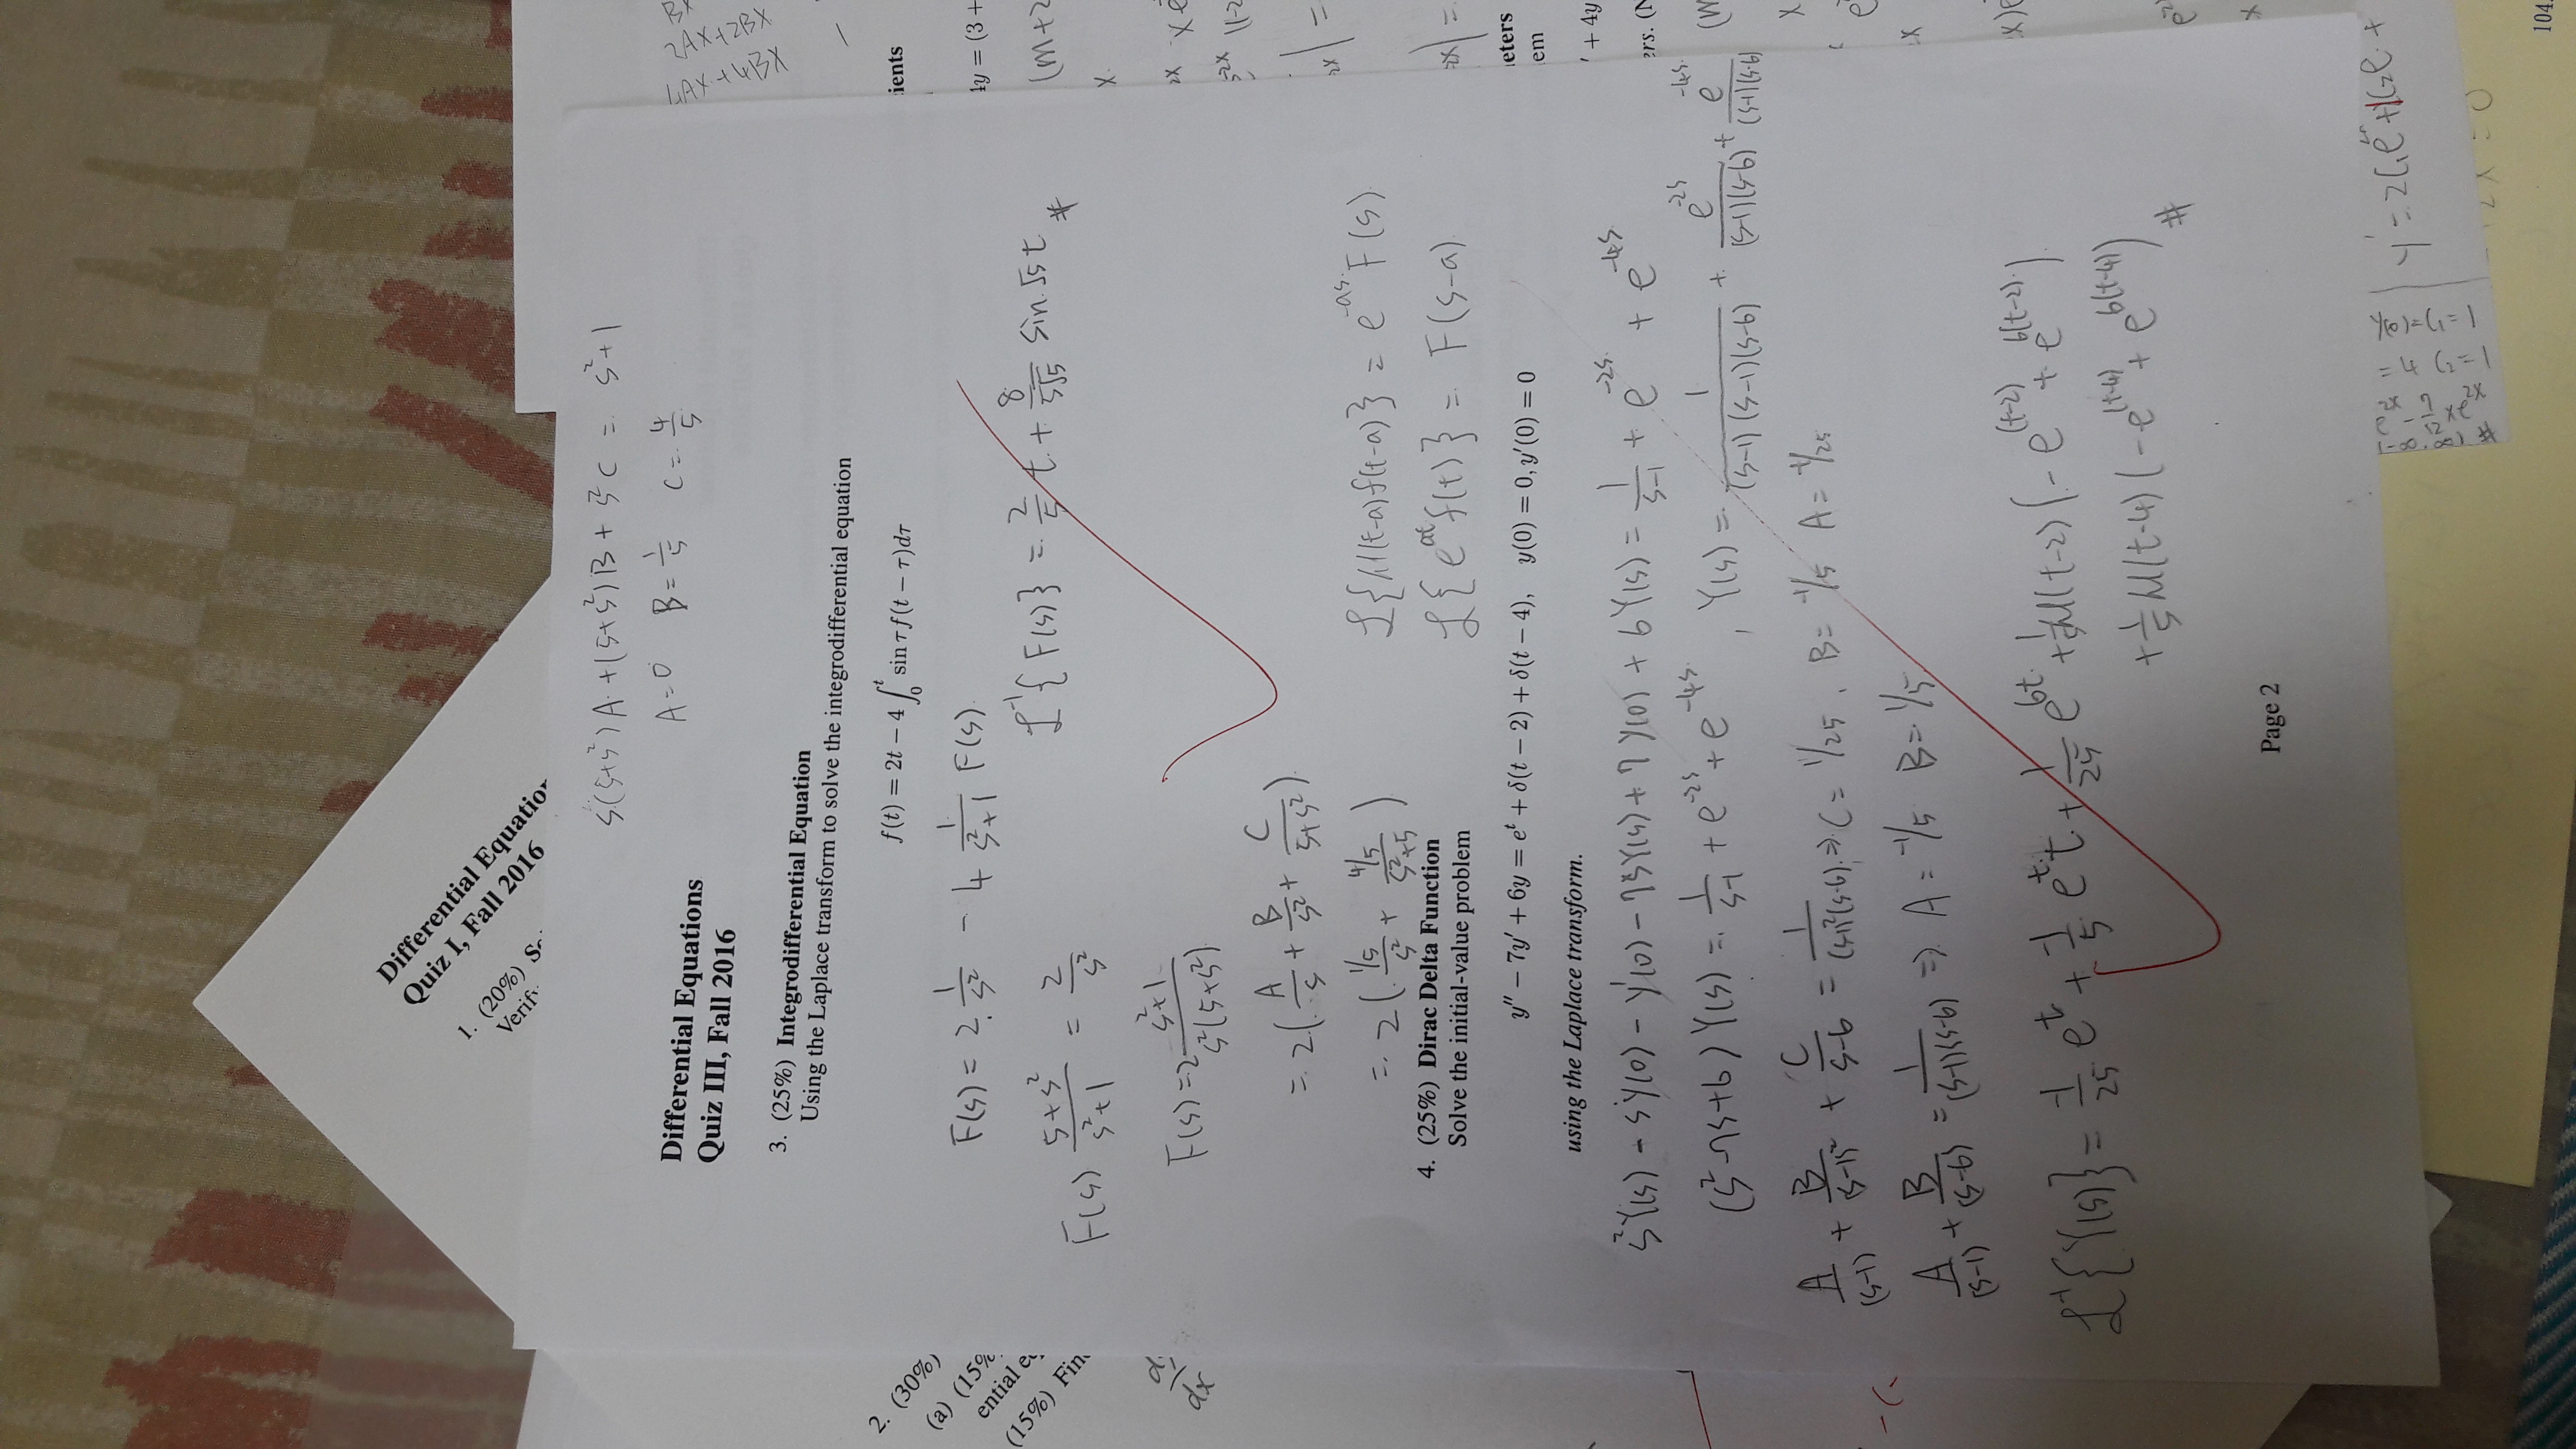 Differential Equation
Quiz I, Fall 2016
1. (20%)
Verify
s(5+s²)A + (5+s²)B + s²C = s²+1
A=0 B=1/5 C=4/5
Differential Equations
Quiz III, Fall 2016
3. (25%) Integrodifferential Equation
Using the Laplace transform to solve the integrodifferential equation
f(t) = 2t − 4 ∫₀ᵗ sin τ f(t − τ)dτ
F(s) = 2·1/s² − 4 1/(s²+1) F(s)
ℒ⁻¹{F(s)} = 2/5 t + 8/(5√5) sin √5 t #
F(s) (5+s²)/(s²+1) = 2/s²
F(s) = 2 (s²+1)/(s²(5+s²))
= 2(A/s + B/s² + C/(5+s²))
= 2((1/5)/s² + (4/5)/(s²+5))
ℒ{𝒰(t-a)f(t-a)} = e^(-as) F(s)
ℒ{e^(at) f(t)} = F(s-a)
4. (25%) Dirac Delta Function
Solve the initial-value problem
y″ − 7y′ + 6y = eᵗ + δ(t − 2) + δ(t − 4), y(0) = 0, y′(0) = 0
using the Laplace transform.
s²Y(s) − sY(0) − Y'(0) − 7sY(s) + 7Y(0) + 6Y(s) = 1/(s-1) + e^(-2s) + e^(-4s)
(s²-7s+6)Y(s) = 1/(s-1) + e^(-2s) + e^(-4s), Y(s) = 1/((s-1)(s-1)(s-6)) + e^(-2s)/((s-1)(s-6)) + e^(-4s)/((s-1)(s-6))
A/(s-1) + B/(s-1)² + C/(s-6) = 1/((s-1)²(s-6)) ⇒ C = 1/25, B = -1/5 A = -1/25
A/(s-1) + B/(s-6) = 1/((s-1)(s-6)) ⇒ A = -1/5 B = 1/5
ℒ⁻¹{Y(s)} = -1/25 e^t + -1/5 e^t t + 1/25 e^(6t) + 1/5 𝒰(t-2)(-e^(t-2) + e^(6(t-2)))
+ 1/5 𝒰(t-4)(-e^(t-4) + e^(6(t-4))) #
Page 2
2. (30%)
(a) (15%
ential e
(15%) Fin
d
dx
2AX+2BX
4AX+4BX
ients
4y = (3 +
(m+2
eters
em
′ + 4y
ers. (N
y' = 2C₁e
y(0)=C₁=1
= 4 C₂=1
104